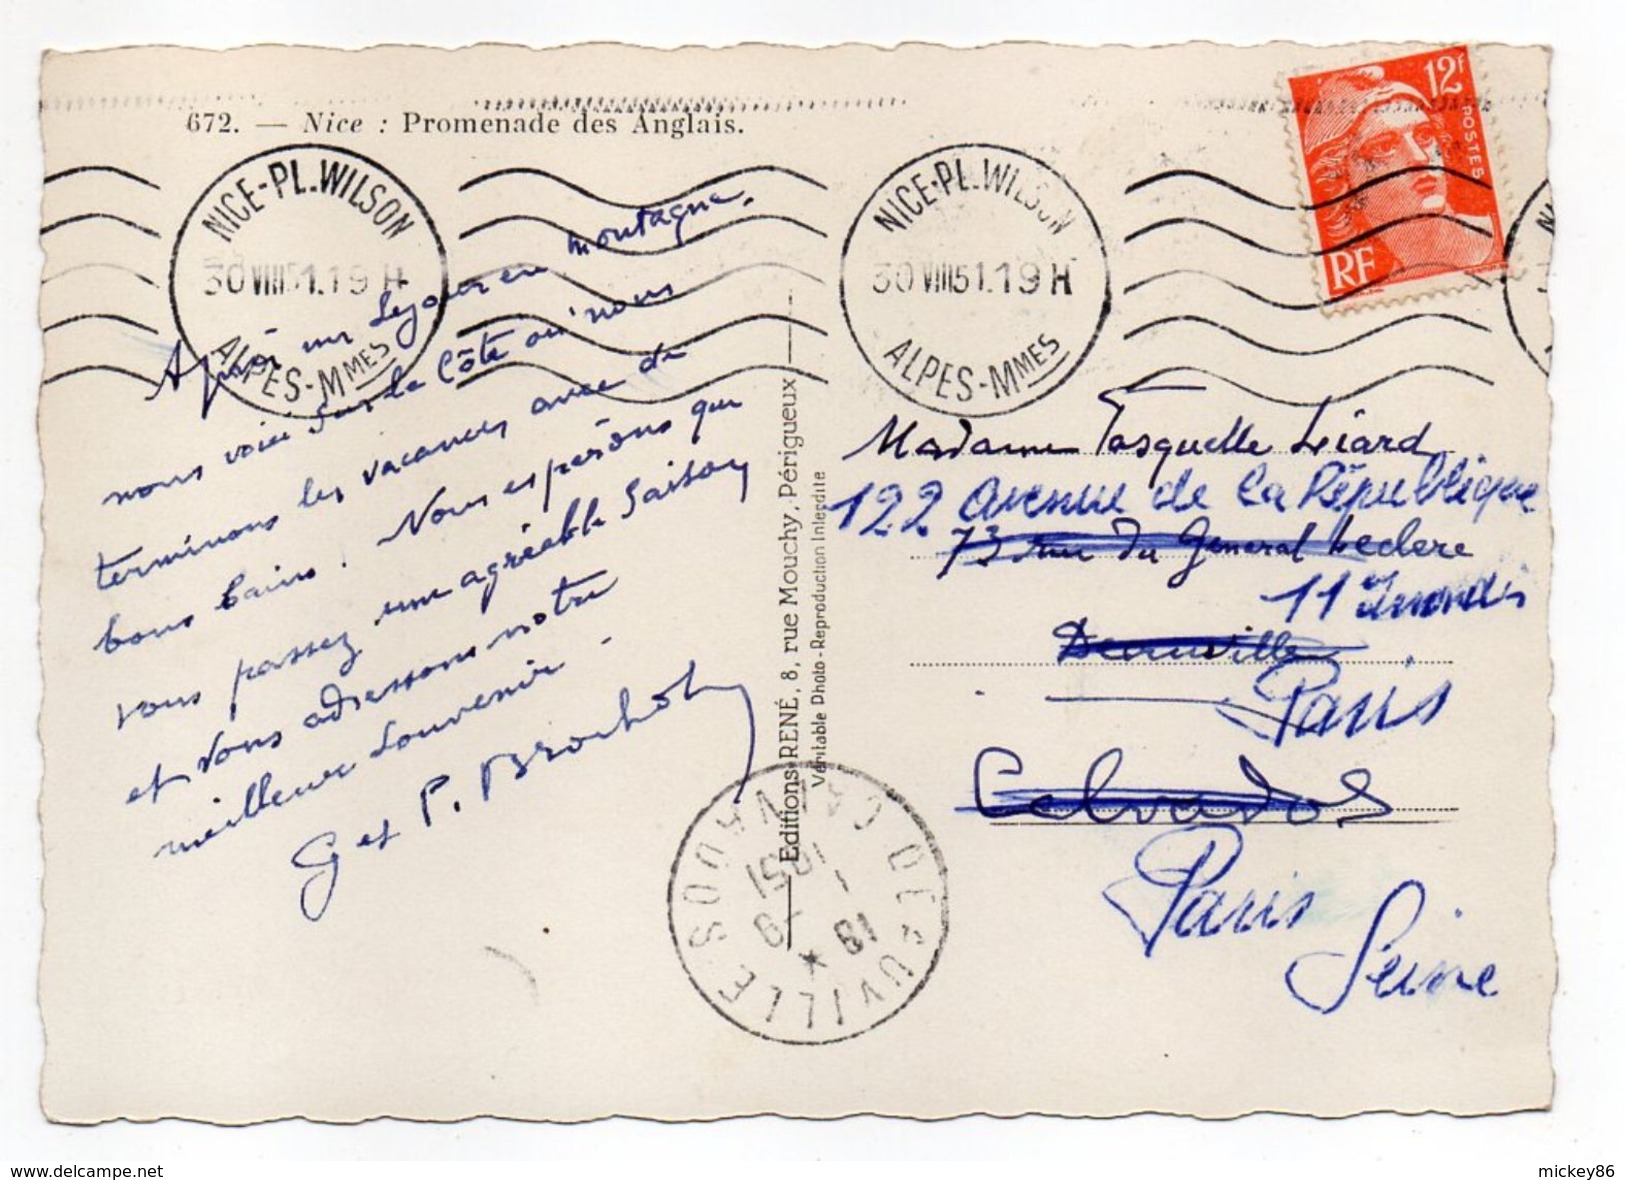 672. — Nice : Promenade des Anglais.
NICE-PL.WILSON
30 VIII 51.19H
ALPES-MMES
NICE-PL.WILSON
30 VIII 51.19H
ALPES-MMES
12F
POSTES
RF
Après un séjour en montagne,
nous voici sur la Côte où nous
terminons les vacances avec de
bons bains. Nous espérons que
vous passez une agréable saison
et vous adressons notre
meilleur souvenir.
G et P. Brochot
Editions RENÉ, 8, rue Mouchy, Périgueux
Véritable Photo - Reproduction Interdite
Madame Pasquelle Liard
122 avenue de la République
73 rue du General Leclerc
11
Deauville
Paris
Calvados
Paris
Seine
DEAUVILLE CALVADOS
18
1 - 9
1951
www.delcampe.net
mickey86